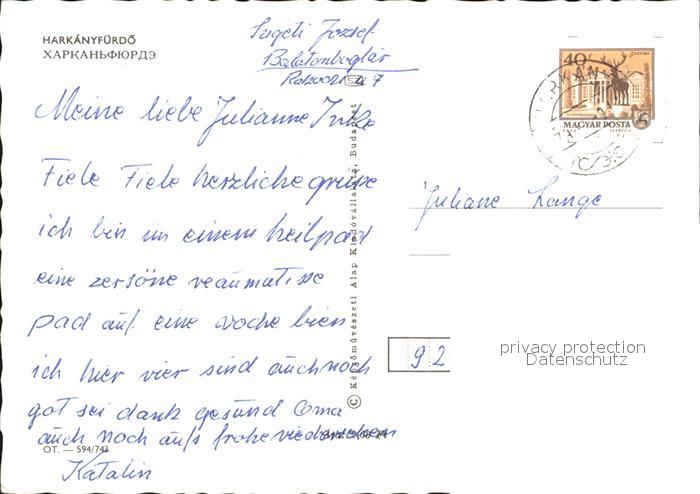 HARKÁNYFÜRDŐ
ХАРКАНЬФЮРДЭ
Szigeti József
Balatonboglár
7
40
MAGYAR POSTA
Meine liebe Julianne
Fiele Fiele herzliche grüse
ich bin im einem heilpad
eine zersöne reaumatisse
pad auf eine woche bien
ich hier vier sind auch noch
got sei dank gesund Oma
auch noch aufs frohe viedersehen
Katalin
OT. — 594/743
© Képzőművészeti Alap Kiadóvállalata, Budapest
Juliane Lange
92
privacy protection
Datenschutz